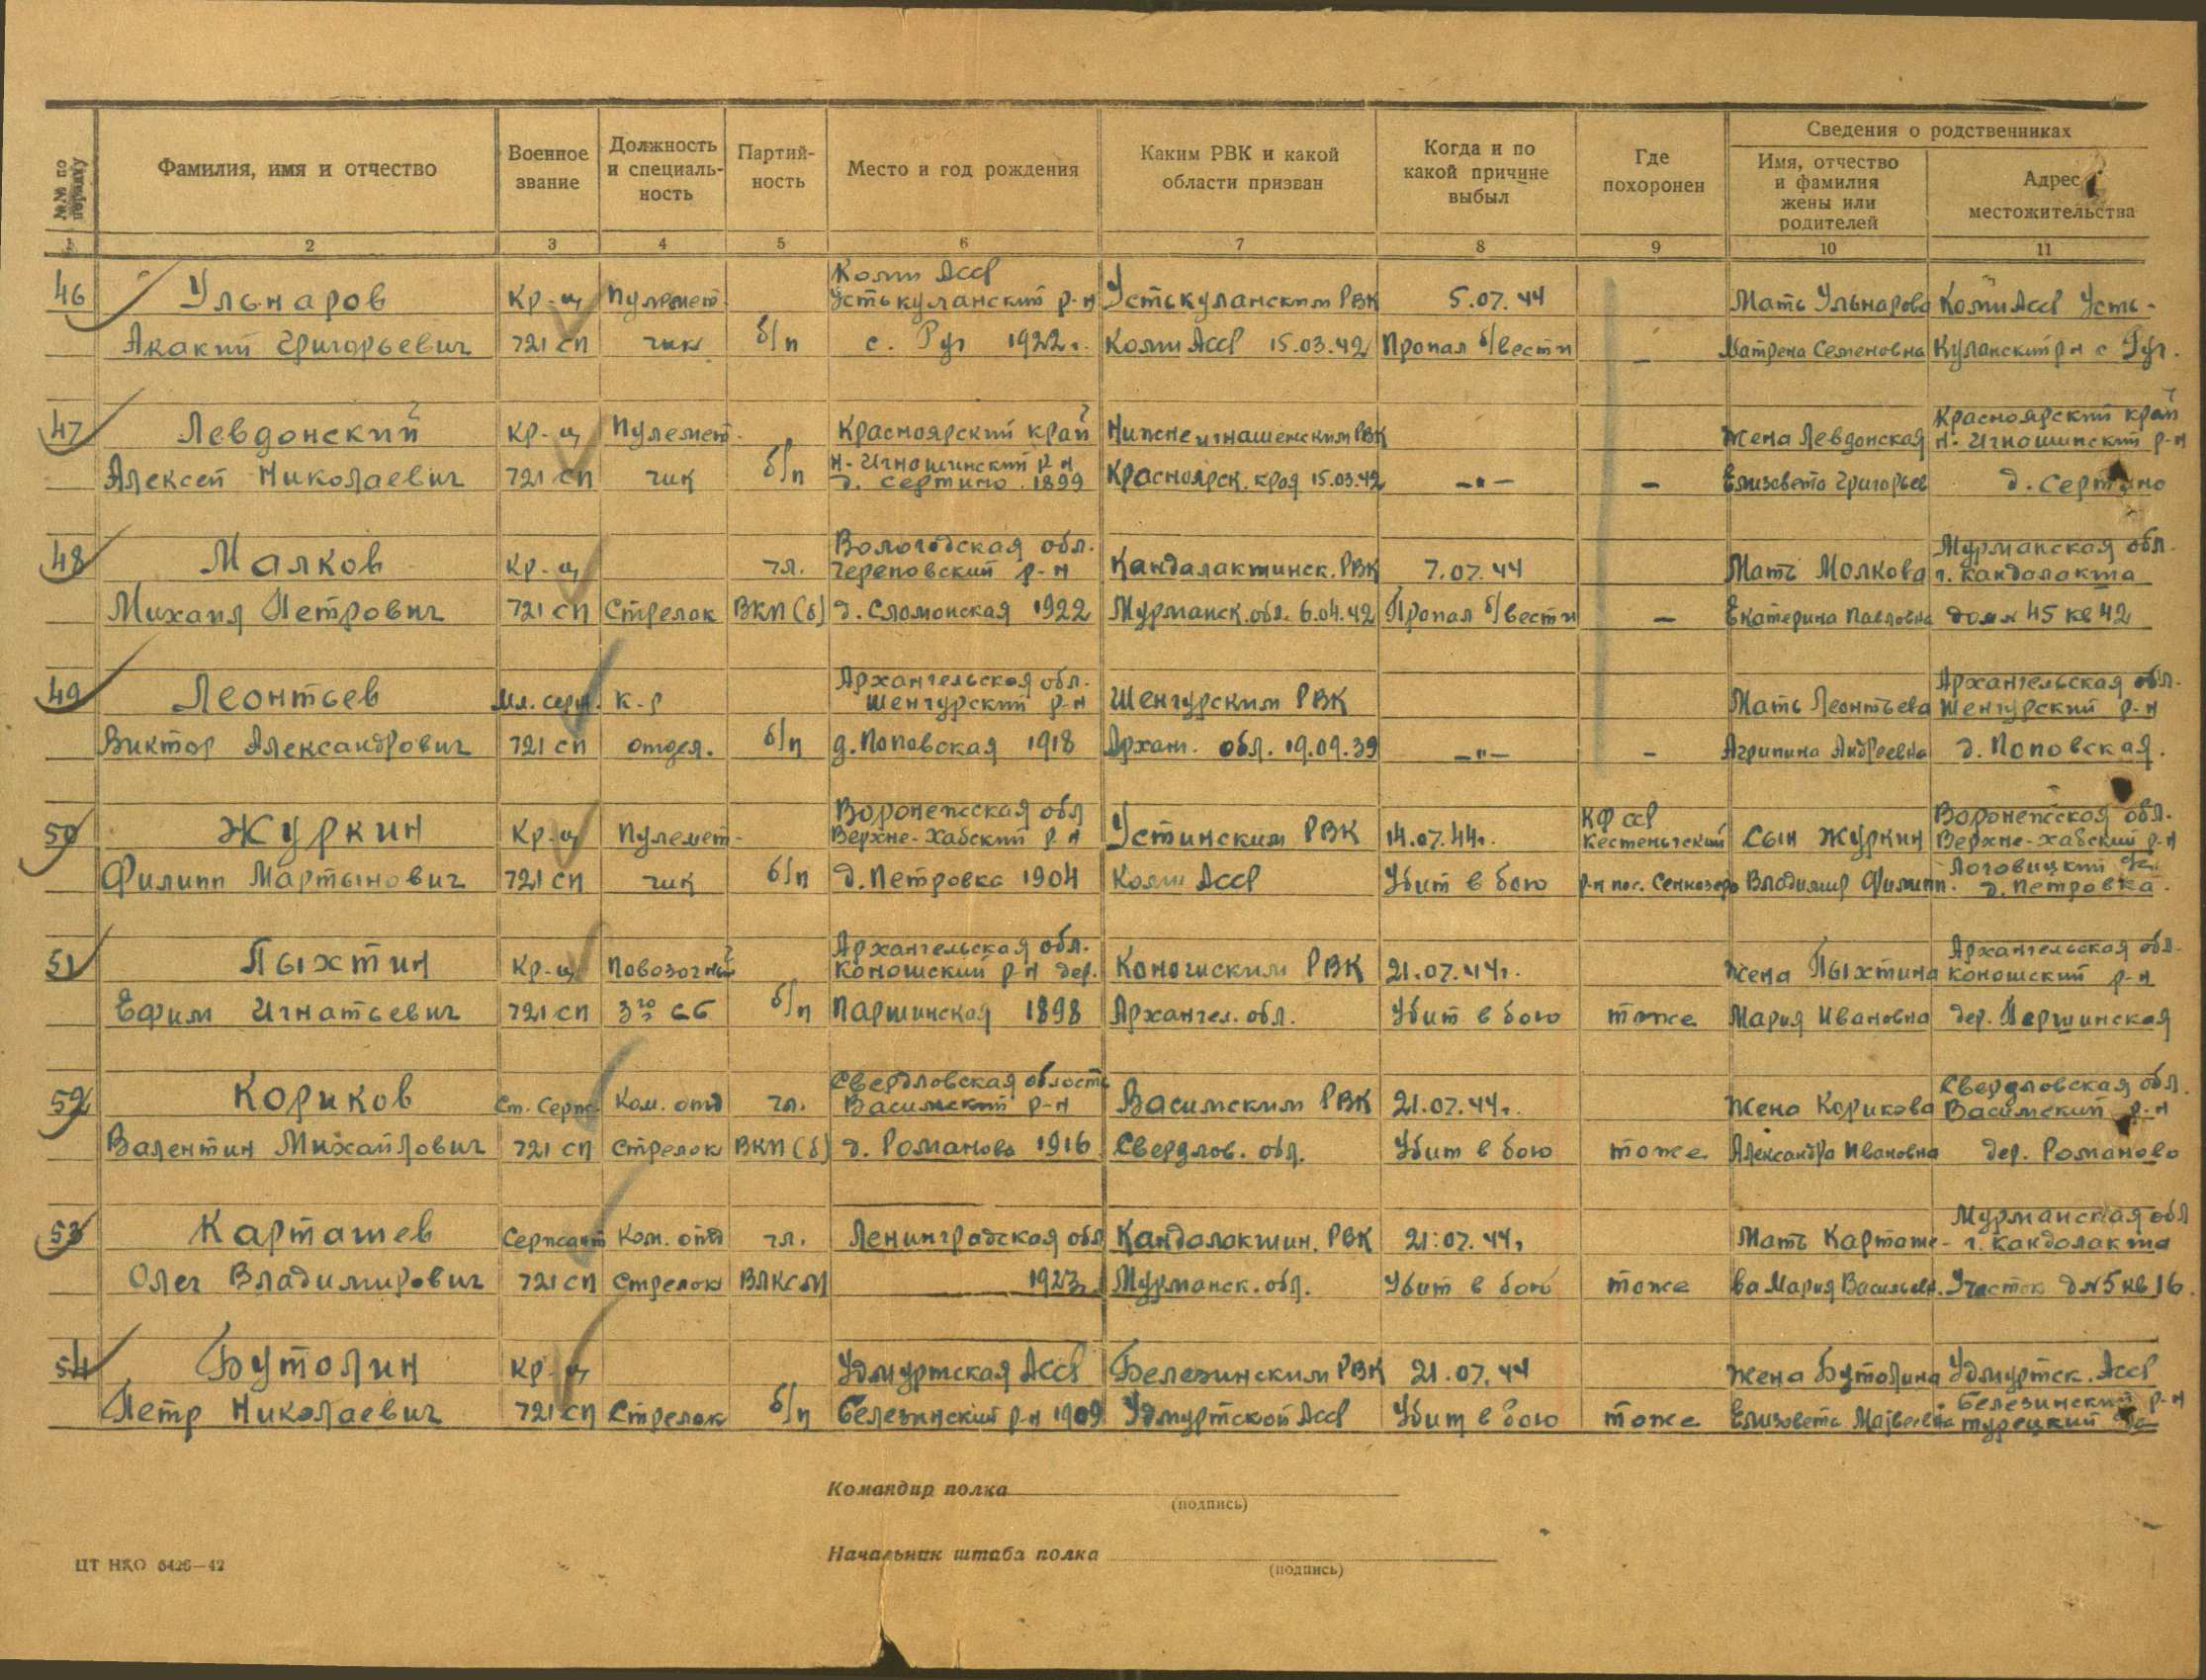 №№ по порядку
Фамилия, имя и отчество
Военное звание
Должность и специаль-ность
Партий-ность
Место и год рождения
Каким РВК и какой области призван
Когда и по какой причине выбыл
Где похоронен
Сведения о родственниках
Имя, отчество и фамилия жены или родителей
Адрес местожительства
1 2 3 4 5 6 7 8 9 10 11
Коми АССР
46 Ульнаров Кр-ц Пулемет- Устькуланский р-н Устькуланским РВК 5.07.44 Мать Ульнарова Коми АССР Усть-
Акакий Григорьевич 721 сп чик б/п с. Руг 1922г. Коми АССР 15.03.42 Пропал б/вести – Матрена Семеновна Куланский р-н с Руг.
Красноярский край
47 Левдонский Кр-ц Пулемет- Красноярский край Нижнеигнашенским РВК Жена Левдонская Н.-Игношинский р-н
Н-Игношинский р-н
Алексей Николаевич 721 сп чик б/п д. Сертино 1899 Красноярск. край 15.03.42 –"– – Елизовета Григорьев д. Сертино
Вологодская обл. Мурманская обл.
48 Малков Кр-ц чл. Череповский р-н Кандалактинск. РВК 7.07.44 Мать Молкова г. Кандалакта
Михаил Петрович 721 сп Стрелок ВКП(б) д. Сломонская 1922 Мурманск. обл. 6.04.42 Пропал б/вести – Екатерина Павловна дом № 45 кв 42
Архангельская обл. Архангельская обл.
49 Леонтьев Мл. серж. К-р Шенгурский р-н Шенгурским РВК Мать Леонтьева Шенгурский р-н
Виктор Александрович 721 сп отдел. б/п д. Поповская 1918 Архан. обл. 19.09.39 –"– – Агрипина Андреевна д. Поповская.
Воронежская обл КФССР Воронежская обл.
50 Журкин Кр-ц Пулемет- Верхне-Хабский р-н Устинским РВК 14.07.44г. Кестеньгский Сын Журкин Верхне-Хабский р-н
Логовицкий с/с
Филипп Мартынович 721 сп чик б/п д. Петровка 1904 Коми АССР Убит в бою р-н пос. Сенкозеро Владимир Филипп. д. Петровка.
Архангельская обл. Архангельская обл.
51 Пыхтин Кр-ц Повозочный Коношский р-н дер. Коношским РВК 21.07.44г. Жена Пыхтина Коношский р-н
Ефим Игнатьевич 721 сп 3го сб б/п Паршинская 1898 Архангел. обл. Убит в бою тоже Мария Ивановна дер. Першинская
Свердловская область Свердловская обл.
52 Кориков Ст. Серж. Ком. отд чл. Васимский р-н Васимским РВК 21.07.44г. Жена Корикова Васимский р-н
Валентин Михайлович 721 сп Стрелок ВКП(б) д. Романово 1916 Свердлов. обл. Убит в бою тоже Александра Ивановна дер. Романово
Мурманская обл
53 Карташев Сержант Ком. отд чл. Ленинградская обл Кандолокшин. РВК 21.07.44г Мать Карташе- г. Кандолакта
Олег Владимирович 721 сп Стрелок ВЛКСМ 1923г. Мурманск. обл. Убит в бою тоже ва Мария Васильевн. Участок д№5 кв 16.
54 Бутолин Кр-ц Удмуртская АССР Белезинским РВК 21.07.44 Жена Бутолина Удмуртск. АССР
Белезинский р-н
Петр Николаевич 721 сп Стрелок б/п Белезинский р-н 1909 Удмуртской АССР Убит в бою тоже Елизовета Матвеевна турецкий с/с
Командир полка
(подпись)
Начальник штаба полка
(подпись)
ЦТ НКО 6426—42